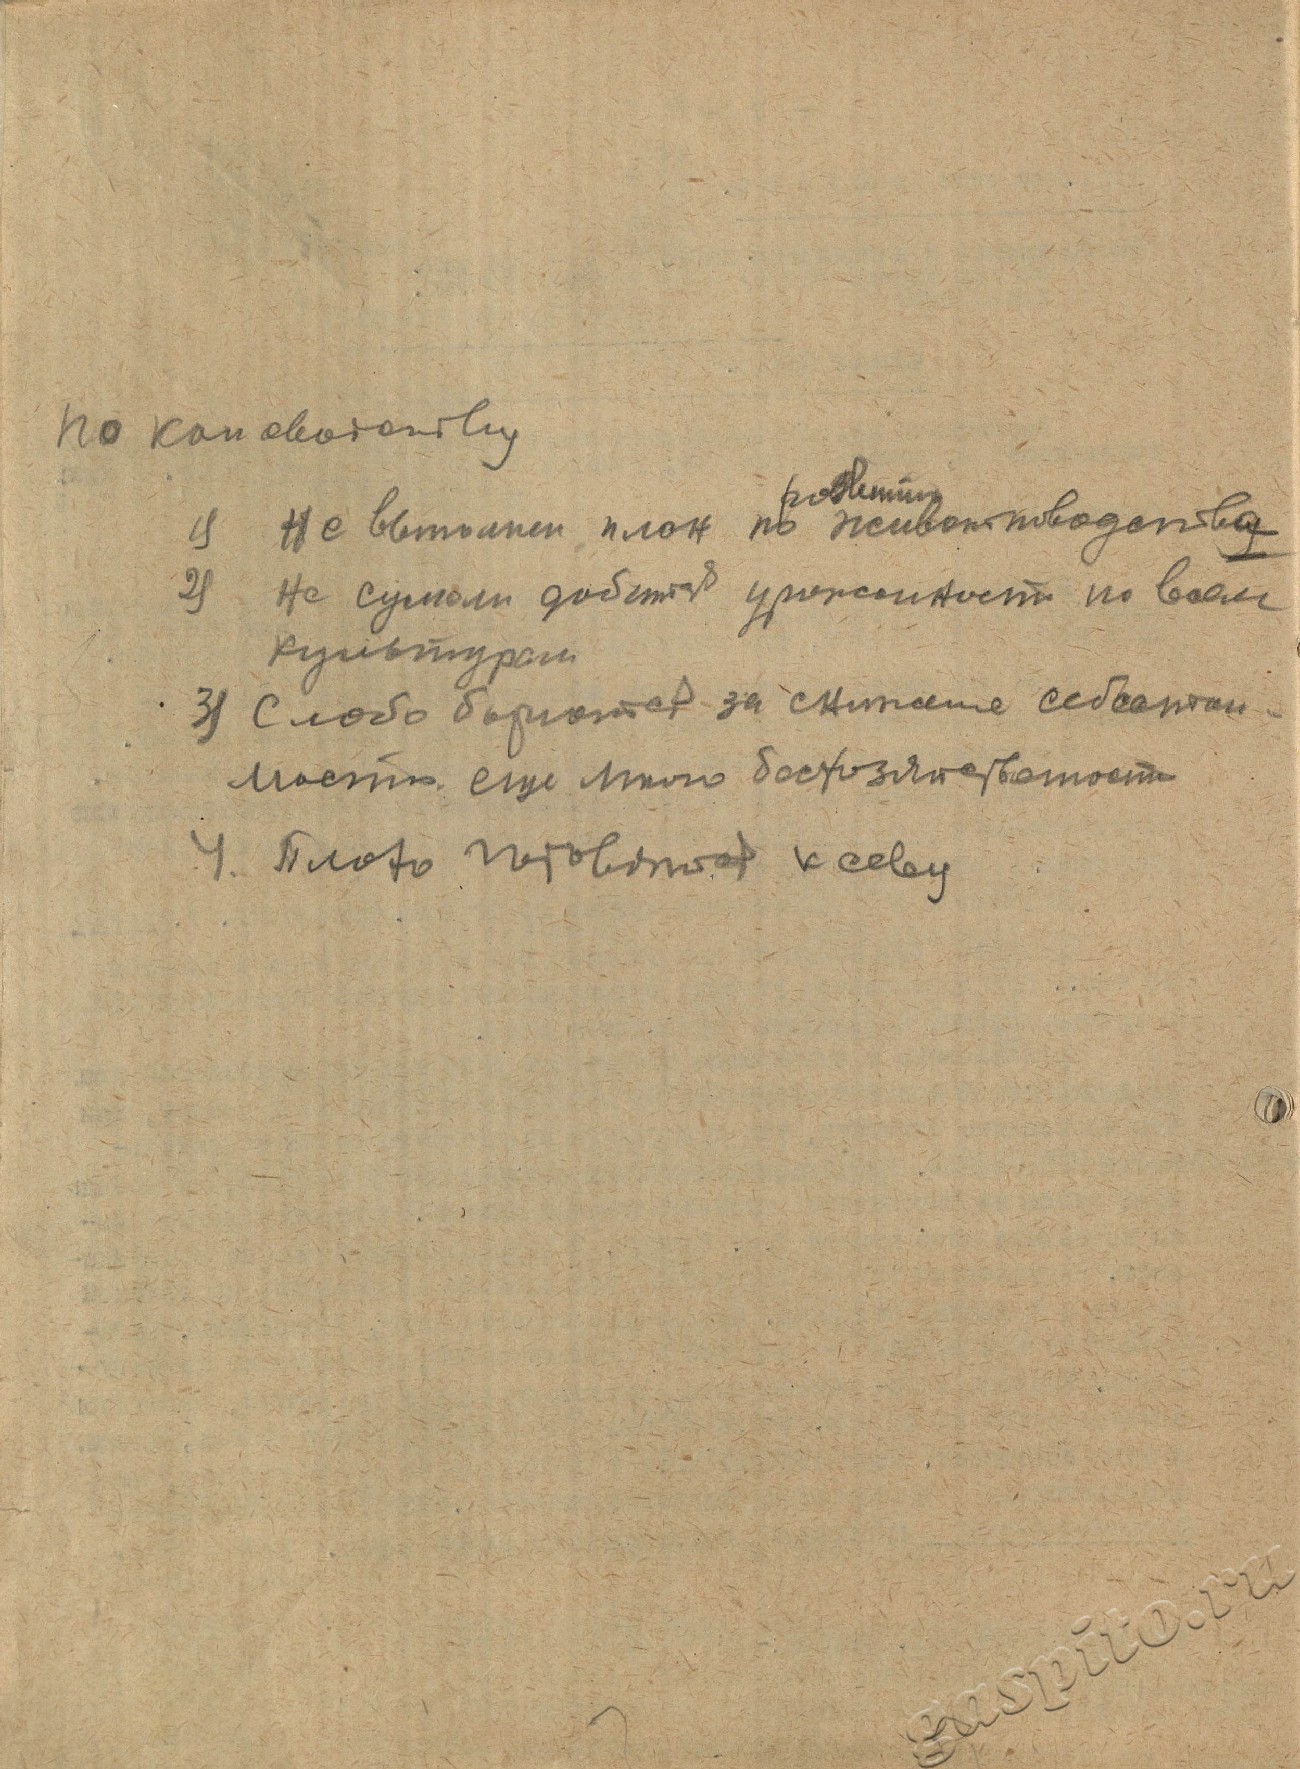 По
1) Не выполнен план по развитию животноводства
2) Не сумели добиться урожайности по всем
культурам
3) Слабо борются за снижение себестои-
мости. еще много бесхозяйственности
4. Плохо готовятся к севу
gaspito.ru